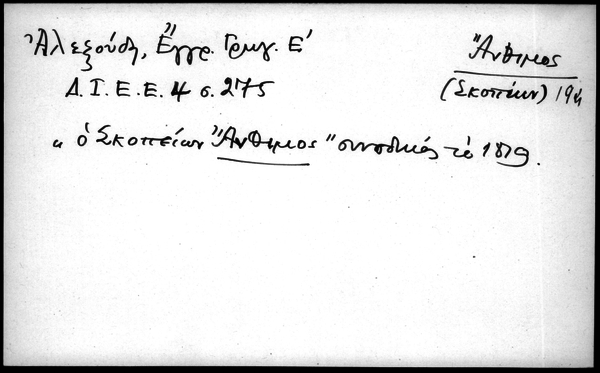 Ἀλεξούδη, Ἔγγρ. Γρηγ. Ε΄
Δ. Ι. Ε. Ε. 4 σ. 275
Ἄνθιμος
(Σκοπείων) 19η
"ὁ Σκοπείων Ἄνθιμος" συνοδικός τὸ 1819.